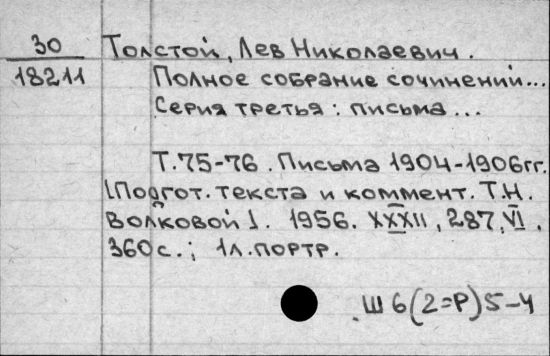 30
18211
Толстой, Лев Николаевич.
Полное собрание сочинений...
Серия третья: письма...
Т.75-76. Письма 1904-1906гг.
[Подгот. текста и коммент. Т.Н.
Волковой]. 1956. XXXII, 287, VI.
360с.; 1л.портр.
Ш6(2=Р)5-4